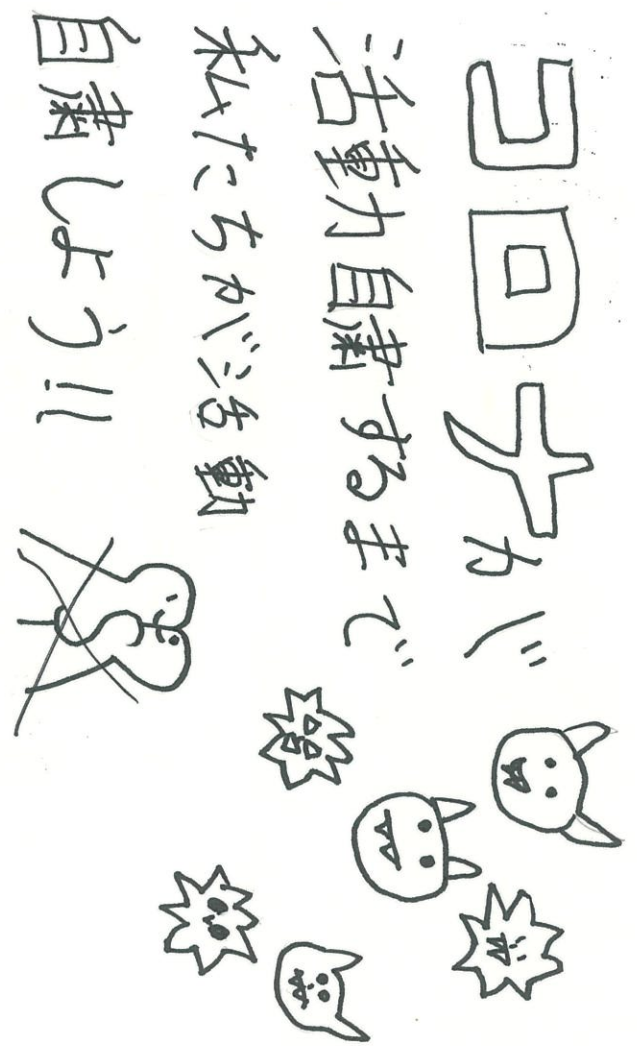 コロナが
活動自粛するまで
私たちが活動
自粛しよう!!